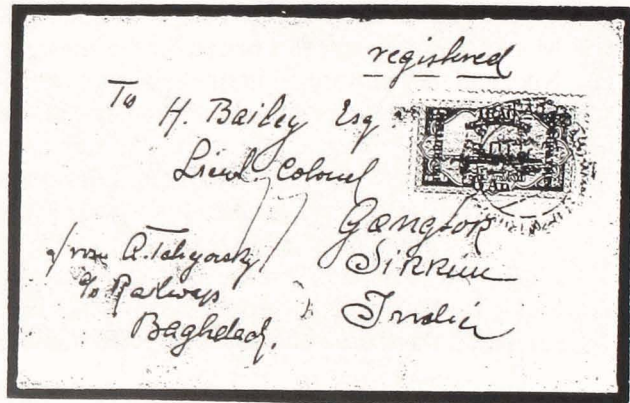 registered
To H. Bailey Esq.
Lieut. Colonel
Gangtok
Sikkim
India
from A.
c/o Railways
Baghdad.